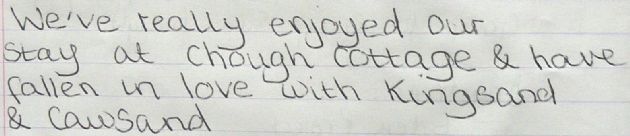 We've really enjoyed our
stay at Chough Cottage & have
fallen in love with Kingsand
& Cawsand